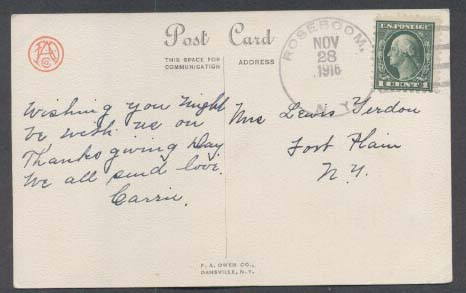 Post Card
THIS SPACE FOR
COMMUNICATION
ADDRESS
ROSEBOOM,
NOV
28
1916
N.Y.
U.S. POSTAGE
1 CENT 1
Wishing you might
be with us on
Thanksgiving Day.
We all send love.
Carrie.
Mrs Lewis Yerdon
Fort Plain
N.Y.
F. A. OWEN CO.,
DANSVILLE, N.Y.